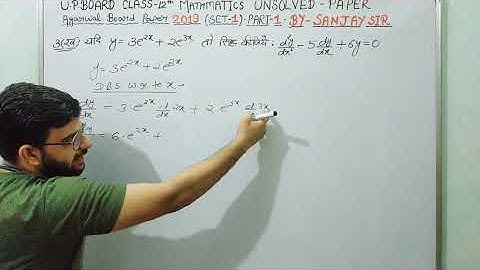 U.P.BOARD CLASS-12th MATHMATICS UNSOLVED-PAPER
Agarwal Board Paper 2013 (SET-1) PART-1 BY-SANJAY SIR
3(ख) यदि y=3e^2x+2e^3x तो सिद्ध कीजिये: d²y/dx²-5dy/dx+6y=0
y=3e^2x+2e^3x
Diff w.r. to x-
dy/dx = 3·e^2x·d/dx 2x + 2·e^3x d/dx 3x
= 6·e^2x +